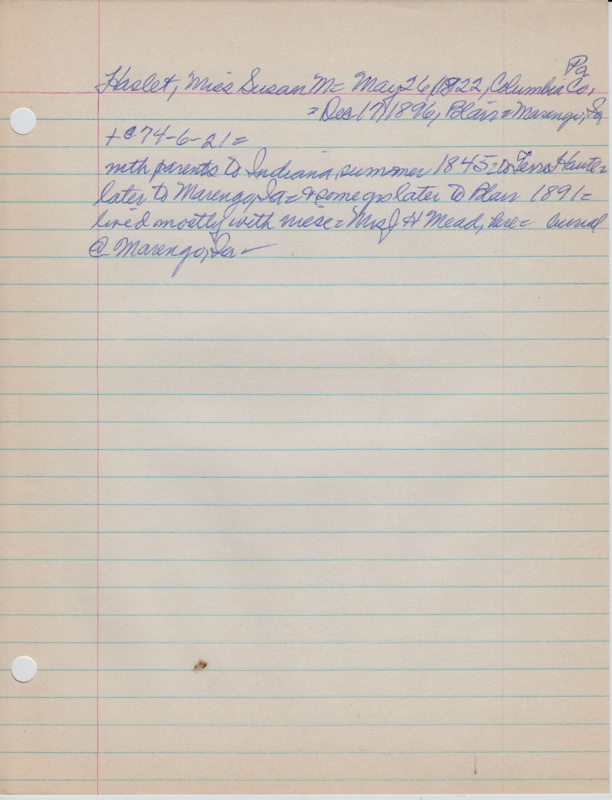 Pa
Haslet, Miss Susan M= May 26, 1822, Columbia Co,
= Dec 17, 1896, Blair = Marengo, Ia,
+ @ 74-6-21 =
with parents to Indiana, summer 1845 = to Terre Haute =
later to Marengo, Ia = & some yrs later to Blair 1891 =
lived mostly with niese = Mrs J H Mead, here = burial
@ Marengo, Ia —